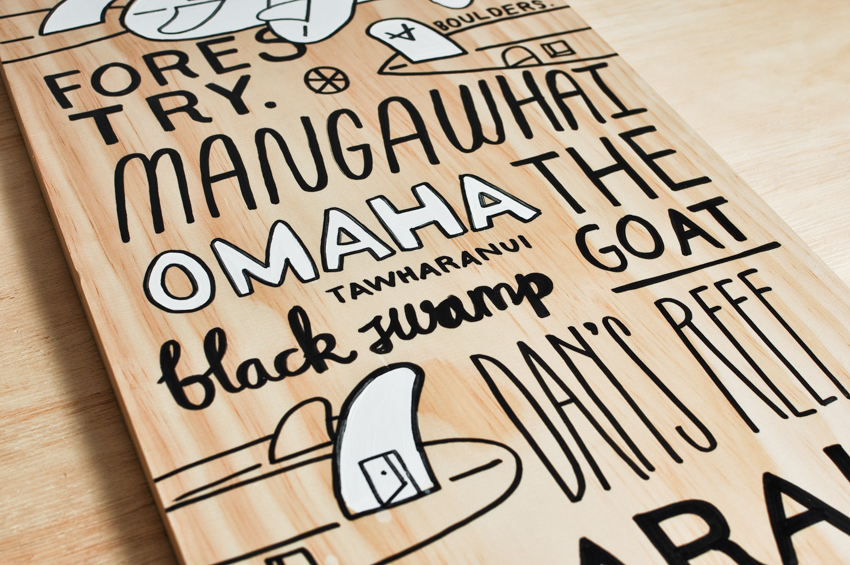 BOULDERS.
FORES
TRY.
MANGAWHAI
THE
GOAT
OMAHA
TAWHARANUI
black swamp
DAN'S REEF